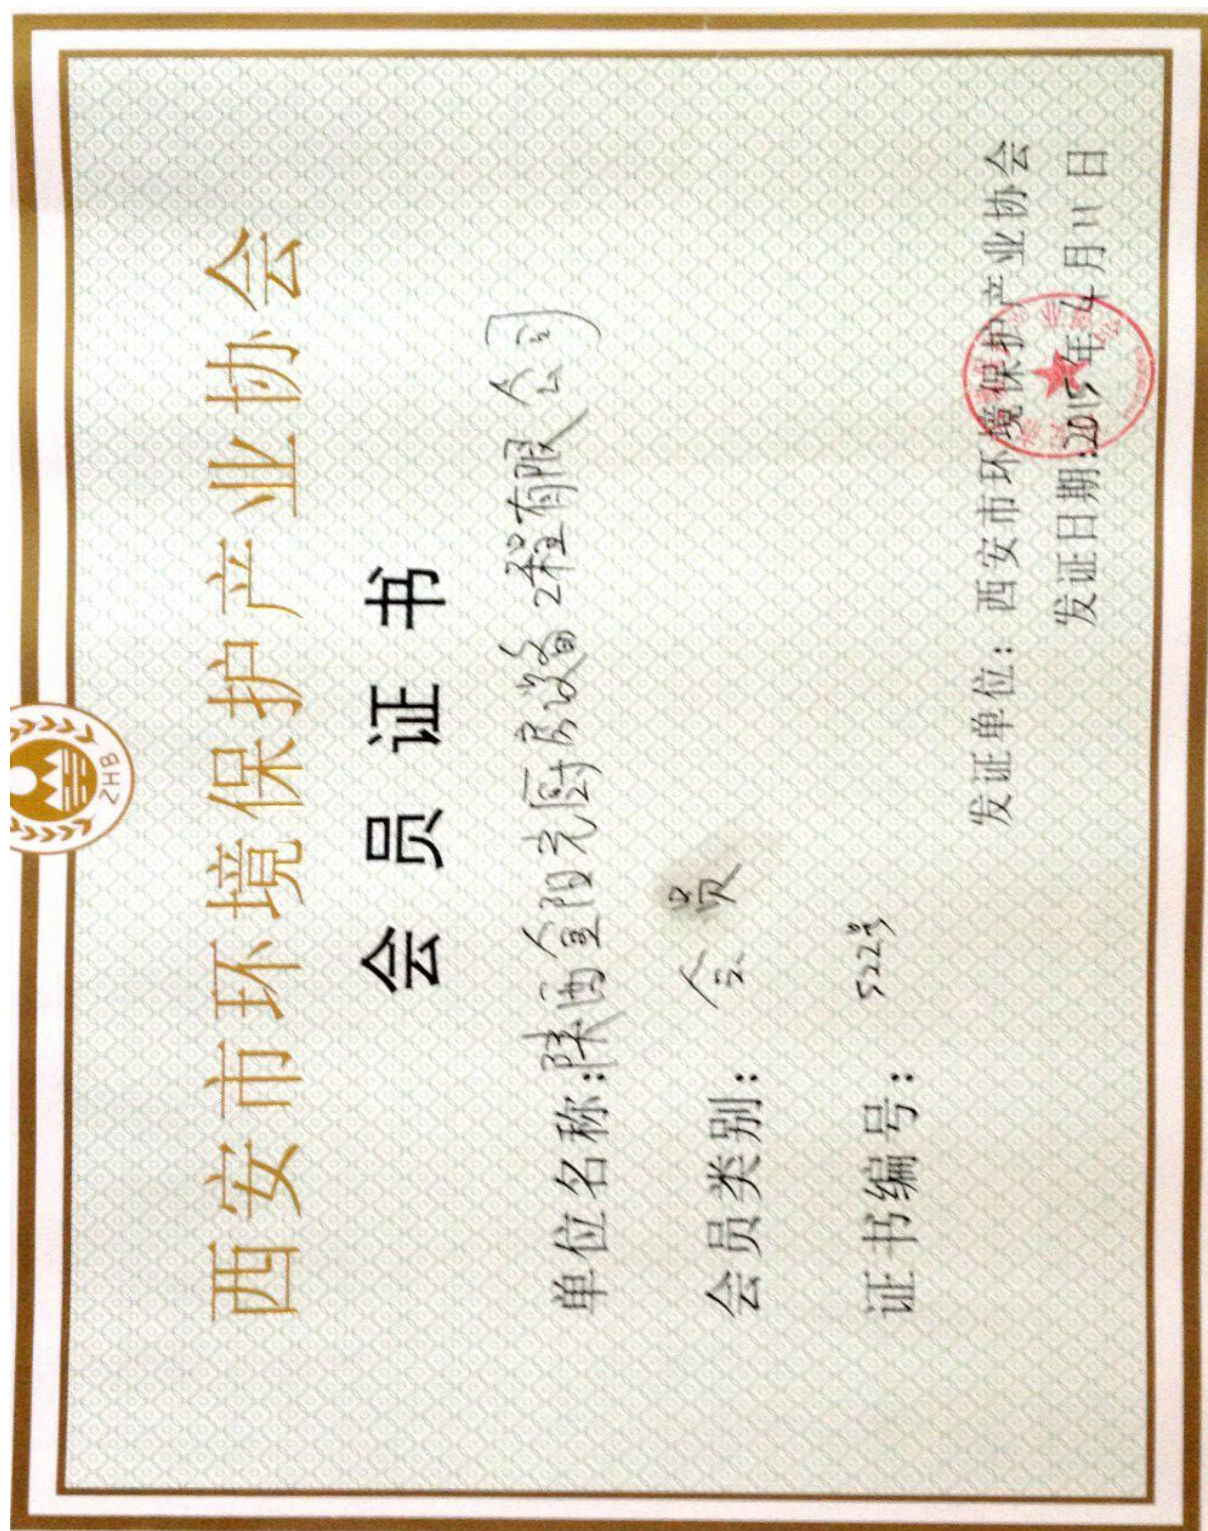 ZHB
西安市环境保护产业协会
会员证书
单位名称:陕西金阳光厨房设备工程有限公司
会员类别:会员
证书编号:522号
发证单位:西安市环境保护产业协会
发证日期:2015年4月11日